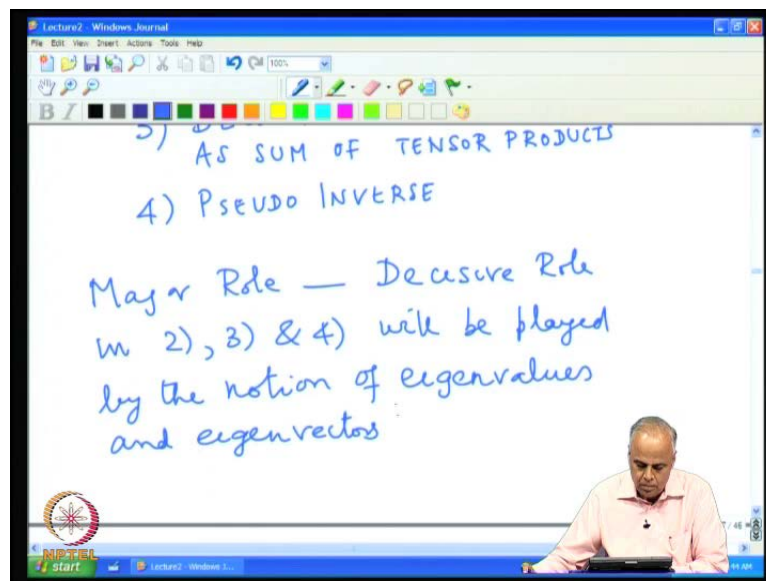 Lecture2 - Windows Journal
File Edit View Insert Actions Tools Help
100%
B I
3)
AS SUM OF TENSOR PRODUCTS
4) PSEUDO INVERSE
Major Role — Decisive Role
in 2), 3) & 4) will be played
by the notion of eigenvalues
and eigenvectors
/ 46
NPTEL
start Lecture2 - Windows J...
44 AM